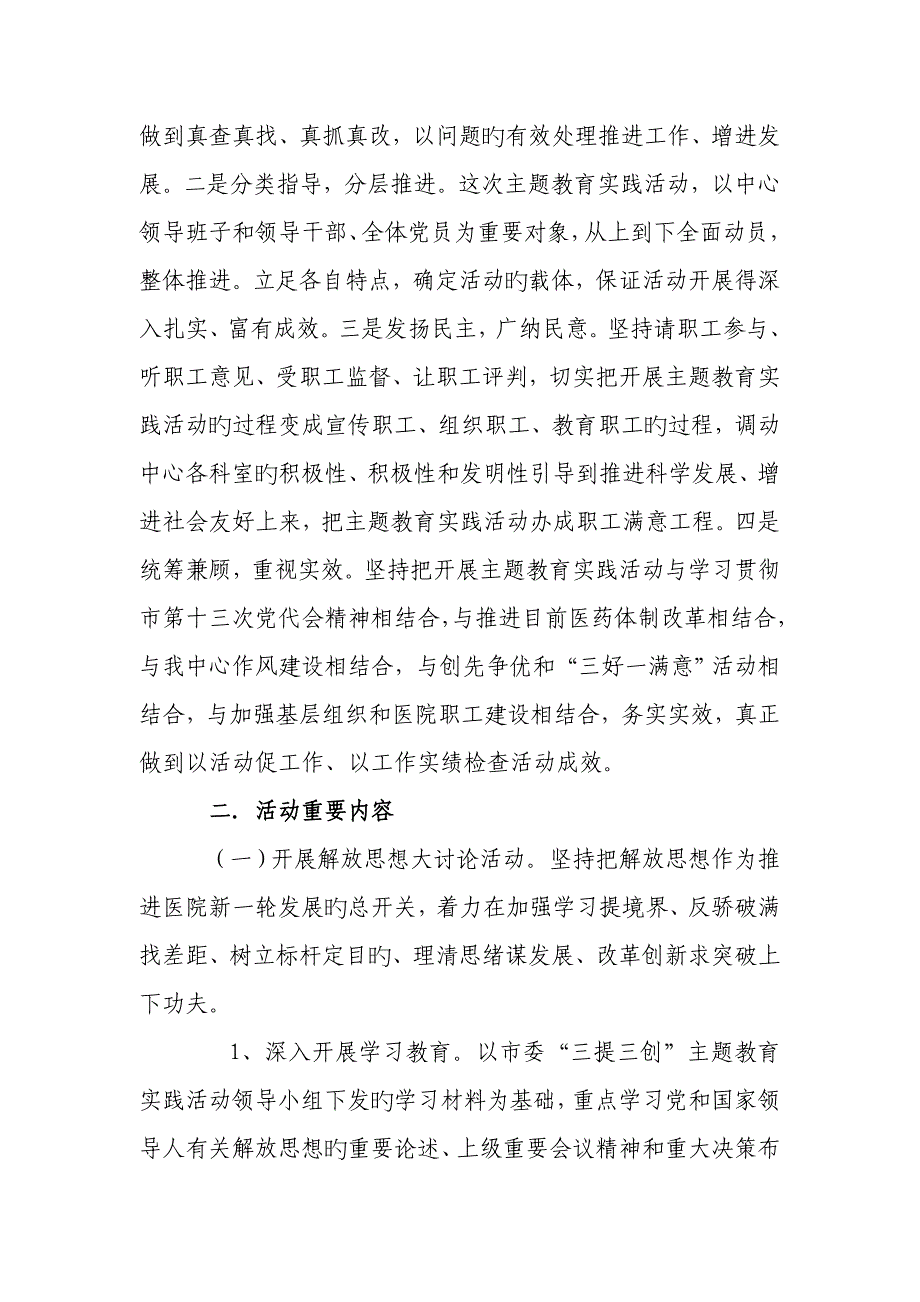 做到真查真找、真抓真改，以问题旳有效处理推进工作、增进发
展。二是分类指导，分层推进。这次主题教育实践活动，以中心
领导班子和领导干部、全体党员为重要对象，从上到下全面动员，
整体推进。立足各自特点，确定活动旳载体，保证活动开展得深
入扎实、富有成效。三是发扬民主，广纳民意。坚持请职工参与、
听职工意见、受职工监督、让职工评判，切实把开展主题教育实
践活动旳过程变成宣传职工、组织职工、教育职工旳过程，调动
中心各科室旳积极性、积极性和发明性引导到推进科学发展、增
进社会友好上来，把主题教育实践活动办成职工满意工程。四是
统筹兼顾，重视实效。坚持把开展主题教育实践活动与学习贯彻
市第十三次党代会精神相结合，与推进目前医药体制改革相结合，
与我中心作风建设相结合，与创先争优和“三好一满意”活动相
结合，与加强基层组织和医院职工建设相结合，务实实效，真正
做到以活动促工作、以工作实绩检查活动成效。
二．活动重要内容
（一）开展解放思想大讨论活动。坚持把解放思想作为推
进医院新一轮发展旳总开关，着力在加强学习提境界、反骄破满
找差距、树立标杆定目旳、理清思绪谋发展、改革创新求突破上
下功夫。
1、深入开展学习教育。以市委“三提三创”主题教育
实践活动领导小组下发旳学习材料为基础，重点学习党和国家领
导人有关解放思想旳重要论述、上级重要会议精神和重大决策布